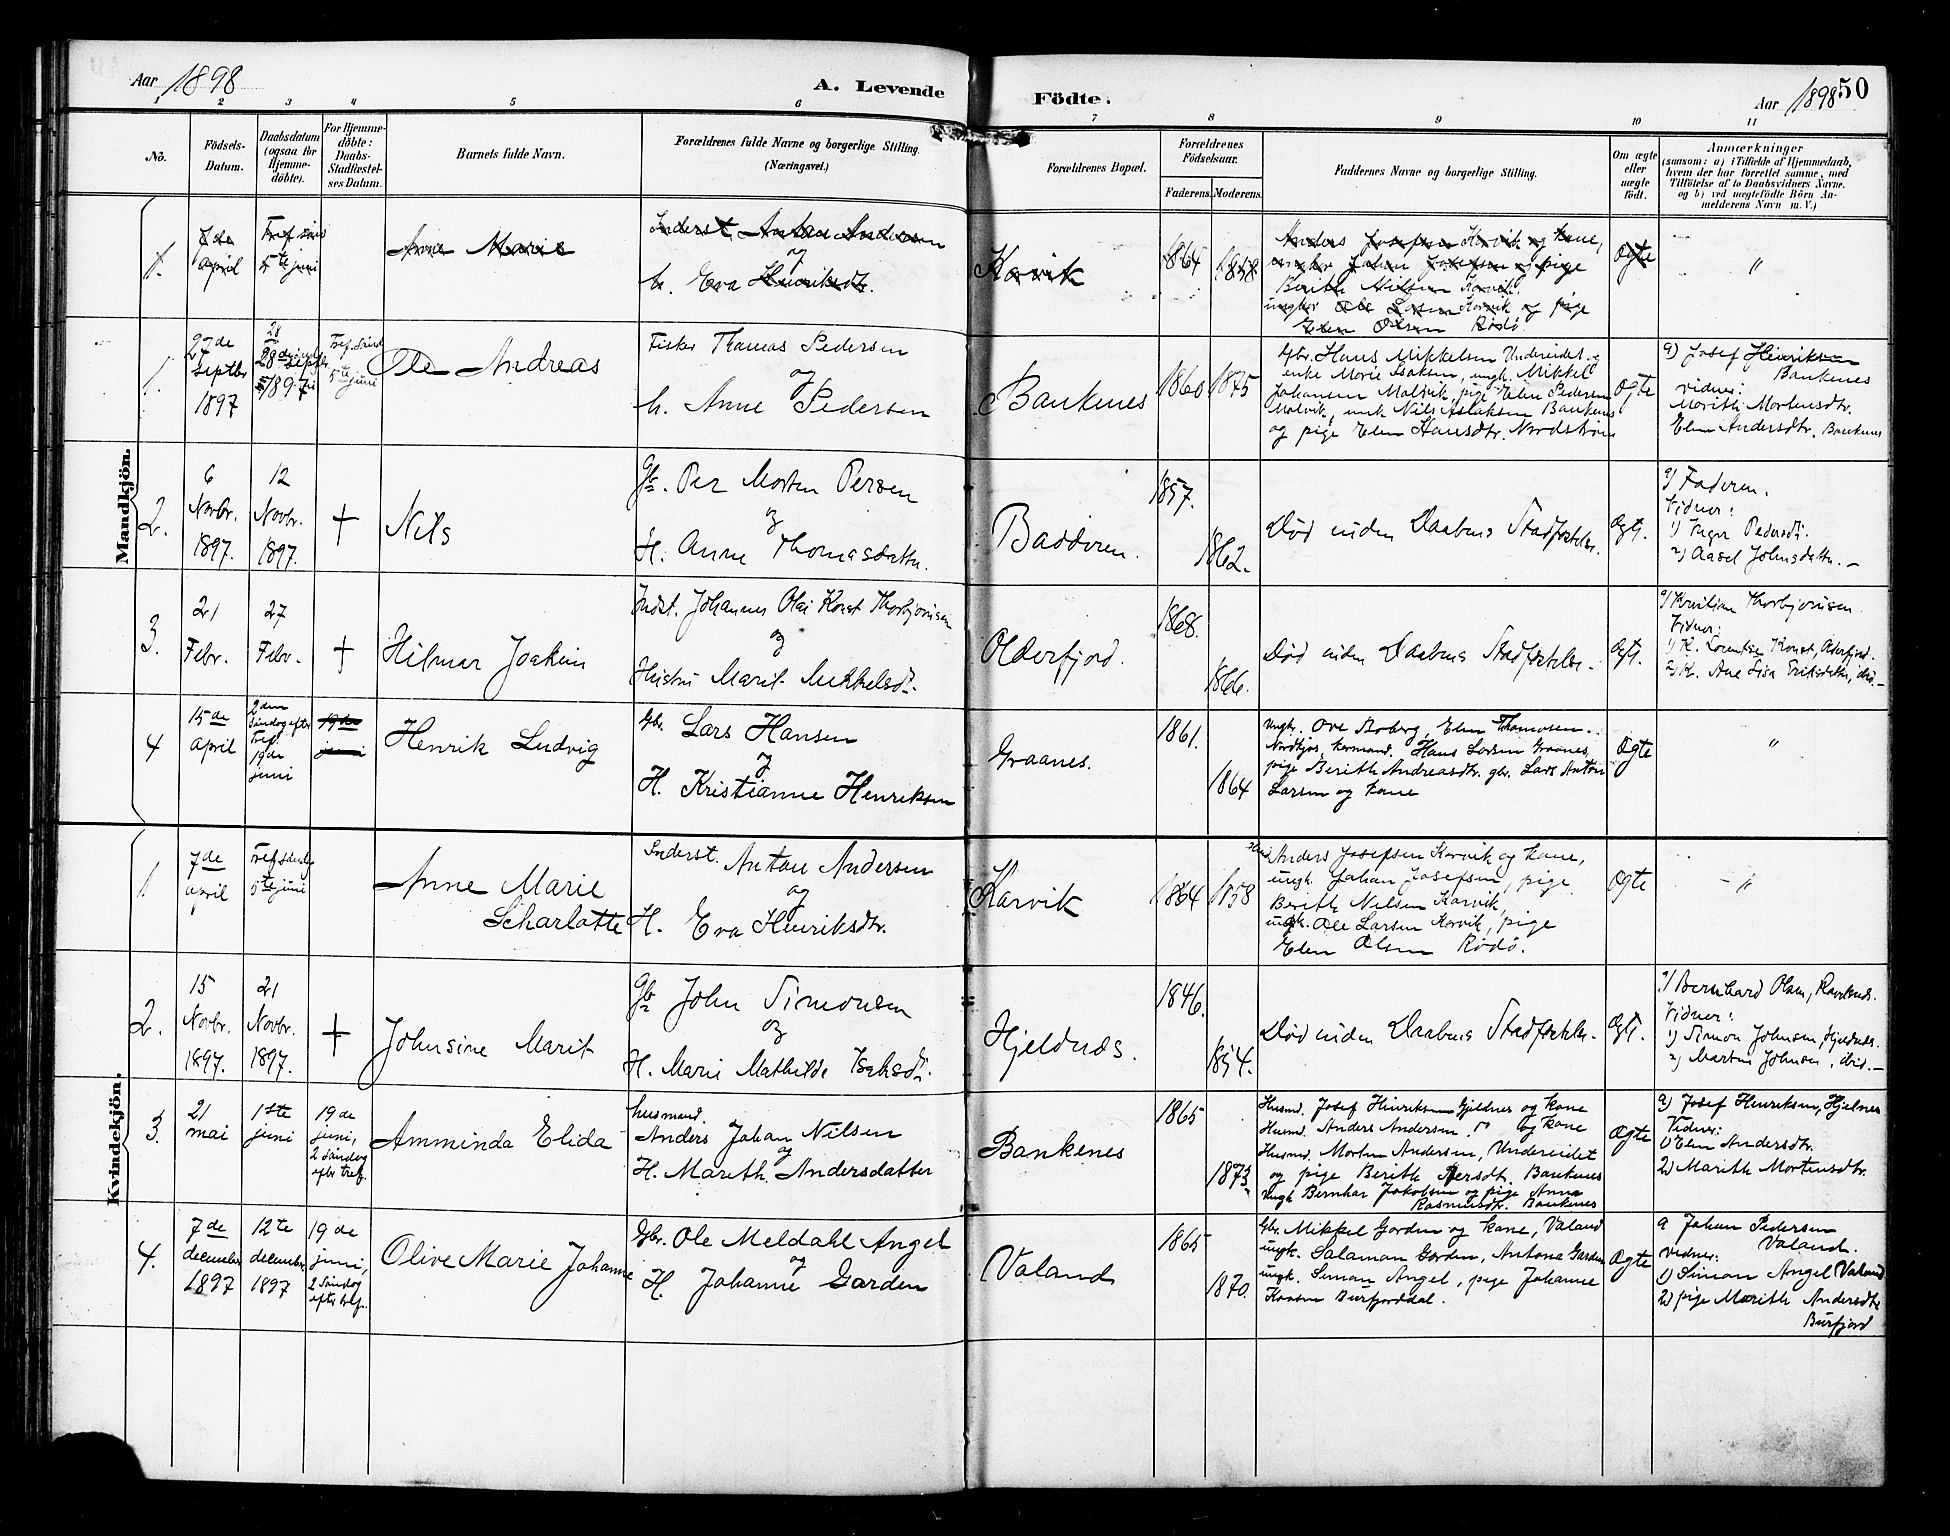 Aar 1898
A. Levende Födte.
Aar 1898
50
1 2 3 4 5 6 7 8 9 10 11
No.
Födsels-Datum.
Daabsdatum (ogsaa for Hjemme-döbte).
For Hjemme-döbte: Daabs-Stadfæstel-ses Datum.
Barnets fulde Navn.
Forældrenes fulde Navne og borgerlige Stilling. (Næringsvei.)
Forældrenes Bopæl.
Forældrenes Födselsaar.
Faderens. Moderens.
Faddernes Navne og borgerlige Stilling.
Om ægte eller uægte födt.
Anmærkninger
(saasom: a) i Tilfælde af Hjemmedaab, hvem der har forrettet samme, med Tilföielse af to Daabsvidners Navne. og b) ved uægtefödte Börn An-melderens Navn m. V.)
Mandkjön.
1.
7de april
5te juni
Anne Marie
Inderst. Anton Andersen
og
h. Eva Henriksdtr.
Korvik
1864
1858
Anders Josefsen Korvik og kone,
ungkar Johan Josefsen og pige
Berith Nilsen Korvik.
ungkar Ole Larsen Korvik og pige
Elen Olsen Rödö
Ogte
"
1.
27de Septbr 1897
28de Septbr 1897
Tref. Sönd 5te juni
Ole Andreas
Fisker Thomas Pedersen
og
h. Anne Pedersen
Bankenes
1860
1875
Gbr. Hans Mikkelsen Undereidet og
enke Marie Isaksen, ungk. Mikkel
Johansen Malvik, pige Elen Pedersen
Malvik, unk Nils Aslaksen Bankenes
og pige Elen Hansdtr. Nordström
Ogte
a) Josef Henriksen
Bankenes
vidner:
Morith Mortensdtr.
Elen Andersdtr. Bankenes
2.
6 Novbr. 1897.
12 Novbr. 1897.
+
Nils
Gbr. Per Morten Persen
og
H. Anne Thomasdatter.
Badderen.
1857.
1862.
Död inden Daabens Stadfæstelse.
Ægt.
a) Faderen.
Vidner:
1) Inger Pedersdtr.
2) Aasel Johnsdatter. –
3.
21 Febr.
27 Febr.
+
Hilmar Joakim
Indst. Johannes Olai Konst Thorbjörnsen
og
Hustru Marit Mikkelsdtr.
Olderfjord.
1868.
1866.
Död inden Daabens Stadfæstelse.
Ægt.
a) Kristian Thorbjörnsen.
Vidner:
1) K. Lorentse Konst, Olderfjord.
2) K. Ane Lisa Eriksdatter, ibid. –
4
15de april
2den Söndag efter Tref. 19de juni
19de juni
Henrik Ludvig
Gbr. Lars Hansen
og
H. Kristianne Henriksen
Graanes.
1861.
1864
Ungk. Ove Boberg, Elen Thomasen
kormand. Hans Larsen Graanes,
pige Berith Andreasdtr. gbr. Lars Anton
Larsen og kone
Ogte
"
Kvindekjön.
1
7de april
Tref. Söndag 5te juni
Anne Marie
Scharlotte
Inderst. Anton Andersen
og
H. Eva Henriksdtr.
Korvik
1864
1858
Anders Josefsen Korvik og kone,
ungk. Johan Josefsen, pige
Berith Nielsen Korvik,
ungk. Ole Larsen Korvik, pige
Elen Olsen Rödö.
Ogte
– "
2.
15 Novbr. 1897.
21 Novbr. 1897.
+
Johnsine Marit
Gbr John Simonsen
og
H. Marie Mathilde Isaksdtr.
Hjeldnæs.
1846.
1854.
Död inden Daabens Stadfæstelse.
Ægt.
a) Bernhard Olsen,
Vidner:
1) Simon Johnsen, Hjeldnæs.
2) Martin Johnsen, ibid. –
3.
21 mai
1ste juni
19de juni, 2 Söndag efter tref.
Amminda Elida
husmand.
Anders Johan Nilsen
og
H. Mareth Andersdatter
Bankenes
1865
1873
Husmd. Josef Henriksen Gjeldnes og kone
Husmd. Anders Andersen. do og kone
Husmd. Morten Andersen, Undereidet
og pige Berith Persdtr. Bankenes
Ungk Bernhar Jakobsen og pige Anna
Rasmusdtr. Bankenes
Ogte
a) Josef Henriksen, Hjelnes
Vidner:
1) Elen Andersdtr.
2) Marith Mortensdtr.
4.
7de december 1897
12te december 1897
19de juni, 2 Söndag efter tref.
Olive Marie Johanne
Gbr. Ole Meldahl Angel
og
H. Johanne Garden
Valand
1865
1870.
Gbr. Mikkel Garden og kone, Valand
ungk. Salaman Garden, Antona Garden
ungk. Simon Angel, pige Johanne
Burfjorddal.
Ogte
a Johan Pedersen
Valand.
vidner:
1) Simon Angel Valand
2) pige Morith Andersdtr
Burfjord